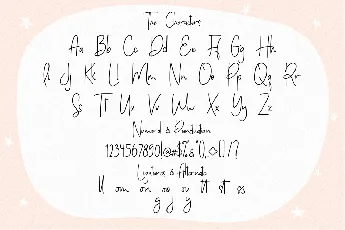 The Characters
Aa Bb Cc Dd Ee Ff Gg Hh
Ii Jj Kk Ll Mm Nn Oo Pp Qq Rr
Ss Tt Uu Vv Ww Xx Yy Zz
Numeral & Punctuation
1234567890!@#$%&*(),<>[]/?
Ligatures & Alternate
ll om on oo ov tt st es
g j y